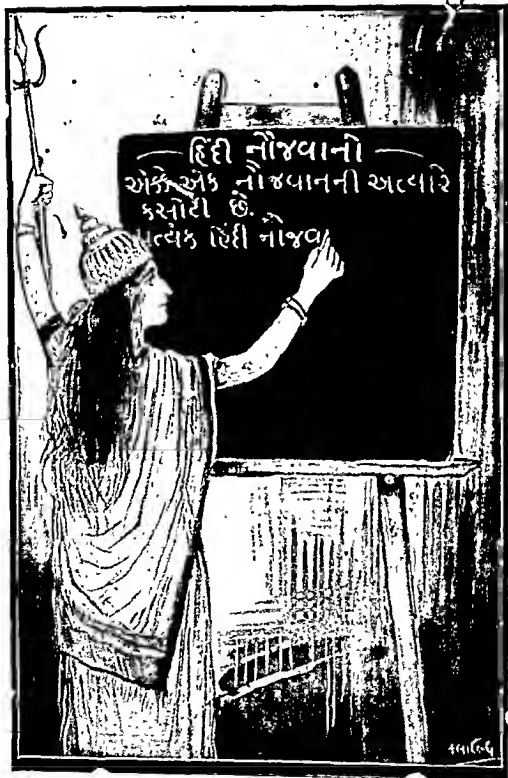 હિંદી નૌજવાનો
એકેએક નૌજવાનની અત્યારે
કસોટી છે.
પ્રત્યેક હિંદી નૌજવ